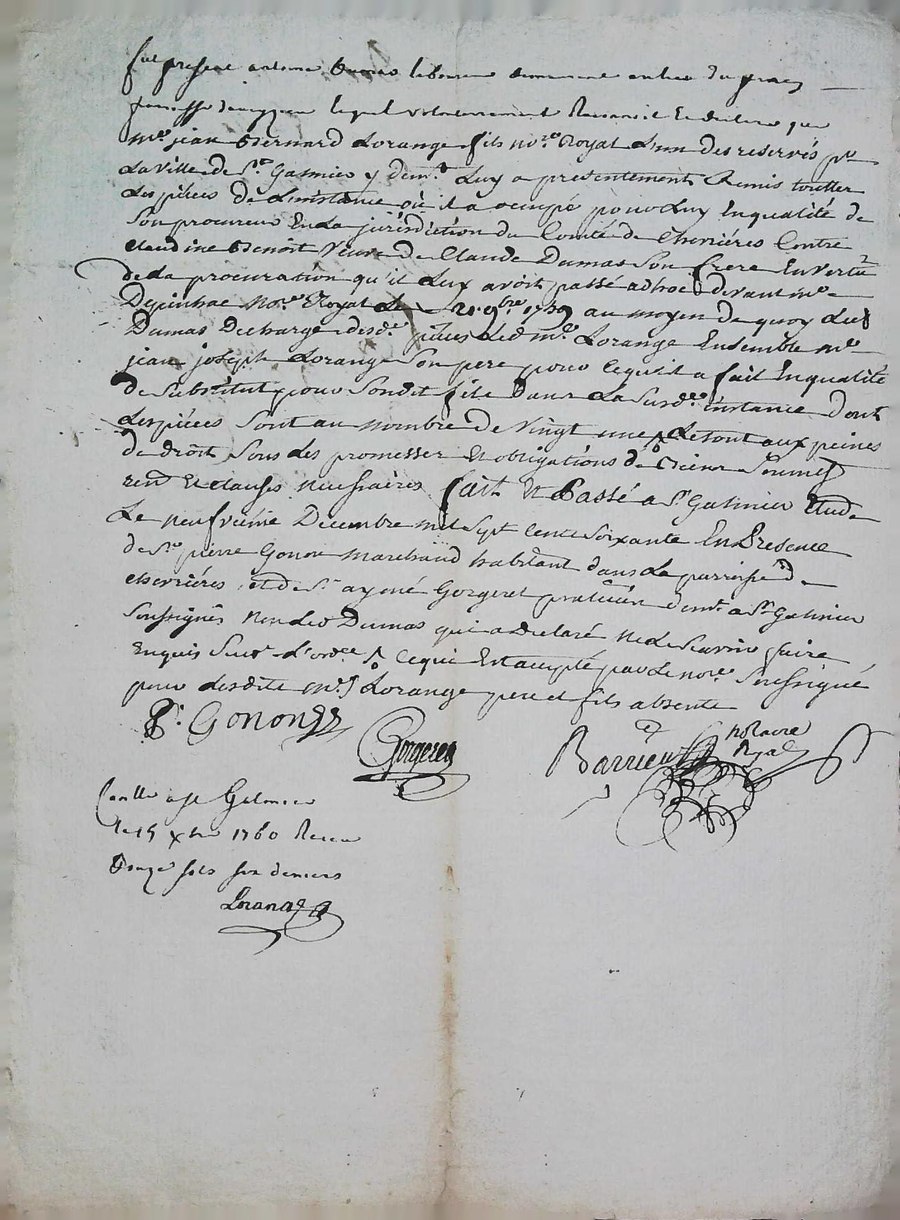 fut present antoine Dumas laboureur demeurant au lieu du
paroisse lequel volontairement Reconnoit et declare que
me. jean Bernard Lorange fils nore. Royal L'un des reservés pr
La Ville de St. Galmier y demt. Luy a presentement Remis touttes
Les piéces de L'instance où il a occupé pour Luy En qualité de
Son procureur En la jurisdiction du Comté de Chevriéres Contre
Claudine Benoît Veuve de Claude Dumas Son frere En vertû
de La procuration qu'il Luy avoit passé ad hoc devant me.
Depinhac Nore. Royal Le 21 9bre. 1759 au moyen de quoy Led.
Dumas Decharge desd. piéces Led. me. Lorange Ensemble me.
jean joseph Lorange Son pere pour Ce qu'il a fait En qualité
de Substitut pour Sondit fils Dans La Susd. instance Dont
Les piéces Sont au nombre de Vingt une Le tout aux peines
de droit Sous Les promesses Et obligations de biens Soumis
rend. Et clauses necessaires fait Et Passé a St. Galmier Etude
Le neufvéme Décembre mil Sept Cents Soixante En Presence
de Sr. pierre Gonon marchand habitant dans La parroisse de
chevriéres et de Sr. aymé Gorgeret praticien demt. a St. Galmier
Soussignés Non Led. Dumas qui a Declaré Ne le Scavoir faire
Enquis Suivt. L'ordce. Ce qui Est accepté par Le nore. Soussigné
pour Lesdits mes. Lorange pere et fils absents
P. Gonon
Gorgeret
Barrieu notaire
Royal
Conllé a St Galmier
le 15 xbre 1760 Receu
Douze sols six deniers
Lorange